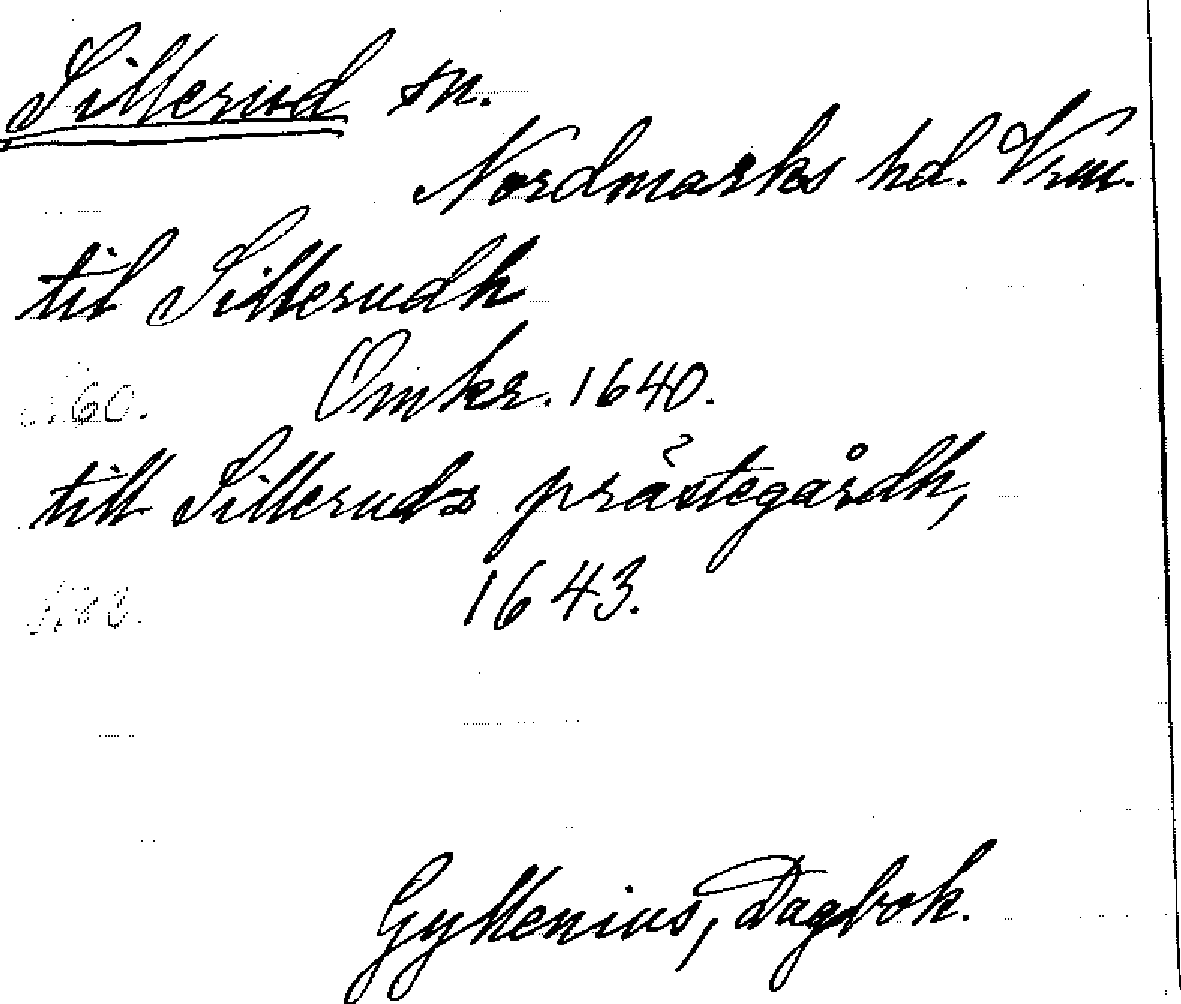 Sillerud sn.
Nordmarks hd. Vrm.
til Sillerudh
Omkr. 1640.
till Silleruds prästegårdh,
1643.
Gyllenius, Dagbok.